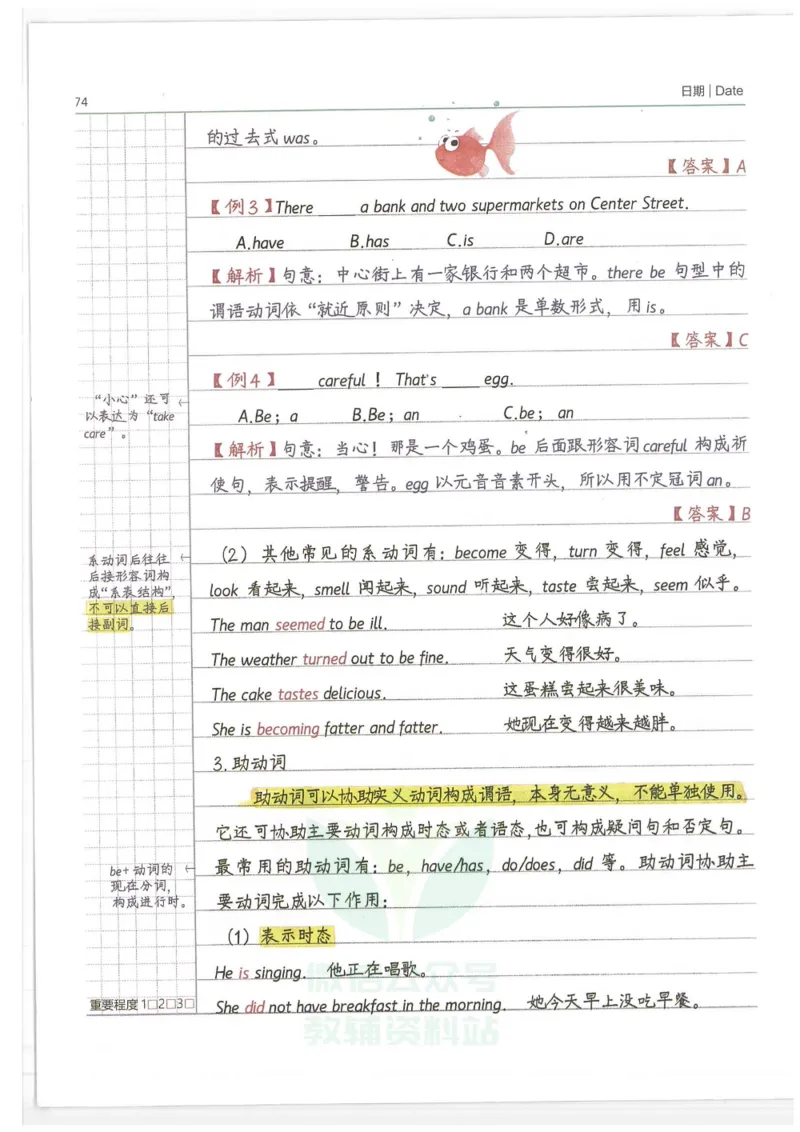 74
日期 | Date
的过去式 was。
【答案】A
【例3】There _____ a bank and two supermarkets on Center Street.
A.have B.has C.is D.are
【解析】句意：中心街上有一家银行和两个超市。there be 句型中的
谓语动词依“就近原则”决定，a bank 是单数形式，用 is。
【答案】C
【例4】_____ careful！That's _____ egg.
“小心”还可
以表达为“take
care”。
A.Be；a B.Be；an C.be；an
【解析】句意：当心！那是一个鸡蛋。be 后面跟形容词 careful 构成祈
使句，表示提醒，警告。egg 以元音音素开头，所以用不定冠词 an。
【答案】B
（2）其他常见的系动词有：become 变得，turn 变得，feel 感觉，
look 看起来，smell 闻起来，sound 听起来，taste 尝起来，seem 似乎。
系动词后往往
后接形容词构
成“系表结构”，
不可以直接后
接副词。
The man seemed to be ill. 这个人好像病了。
The weather turned out to be fine. 天气变得很好。
The cake tastes delicious. 这蛋糕尝起来很美味。
She is becoming fatter and fatter. 她现在变得越来越胖。
3.助动词
助动词可以协助实义动词构成谓语，本身无意义，不能单独使用。
它还可协助主要动词构成时态或者语态，也可构成疑问句和否定句。
最常用的助动词有：be，have/has，do/does，did 等。助动词协助主
要动词完成以下作用：
be+动词的
现在分词，
构成进行时。
（1）表示时态
He is singing. 他正在唱歌。
She did not have breakfast in the morning. 她今天早上没吃早餐。
重要程度 1□2□3□
微信公众号
教辅资料站